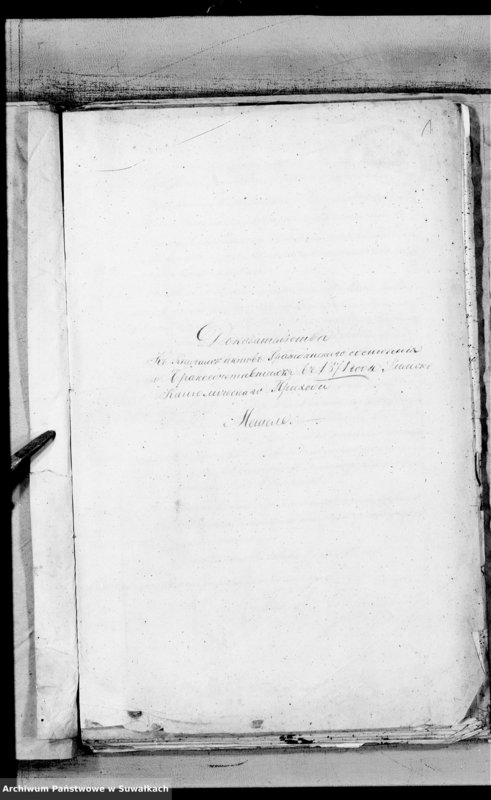 Доказательства
Къ Книгамъ актовъ Гражданскаго состоянія
о Бракосочетавшихся въ 1871 году Римско
Католическаго Прихода
Archiwum Państwowe w Suwałkach